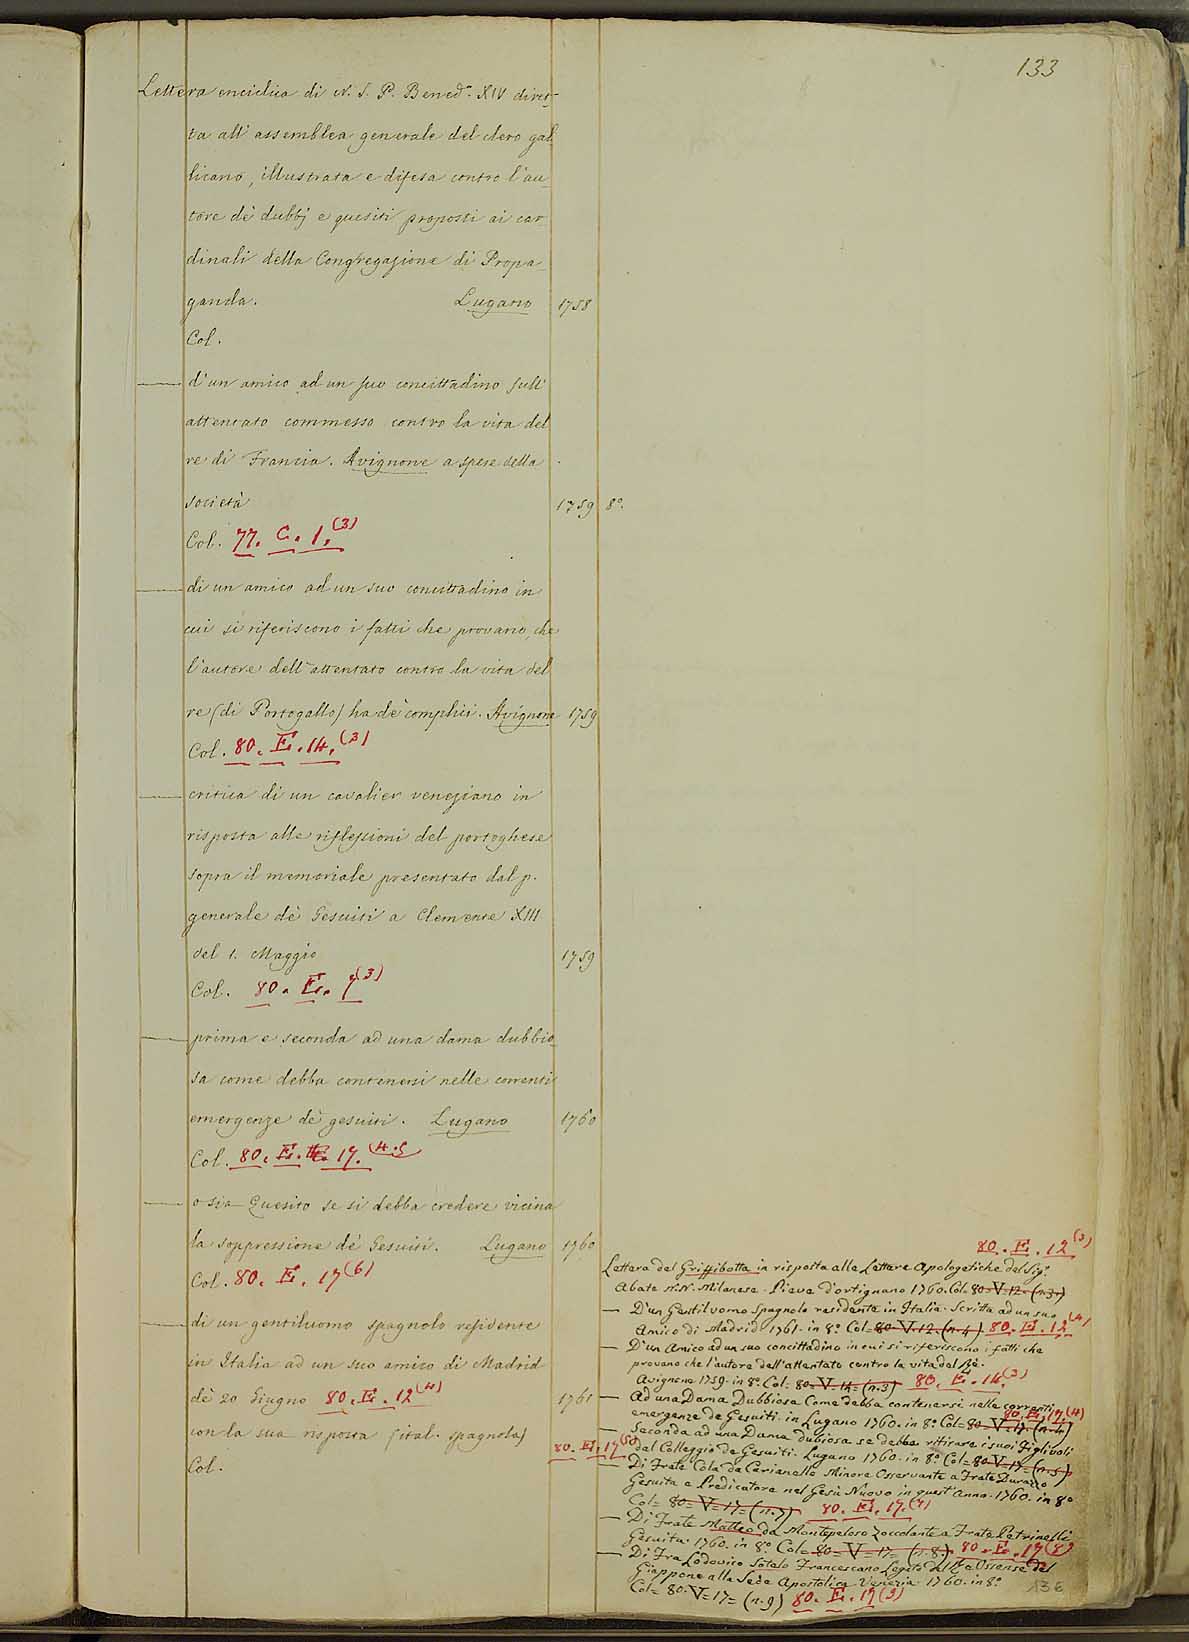 133
Lettera enciclica di N. S. P. Bened.º XIV diret-
ta all' assemblea generale del clero gal
licano, illustrata e difesa contro l'au-
tore dè dubbj e quesiti proposti ai car-
dinali della Congregazione di Propa-
ganda. Lugano 1758
Col.
— d'un amico ad un suo concittadino sull'
attentato commesso contro la vita del
re di Francia. Avignone a spese della
società 1759 8º.
Col. 77. C. 1. (3)
— di un amico ad un suo concittadino in
cui si riferiscono i fatti che provano, che
l'autore dell'attentato contro la vita del
re (di Portogallo) ha dè complici. Avignone 1759
Col. 80. E. 14. (3)
— critica di un cavalier veneziano in
risposta alle riflessioni del portoghese
sopra il memoriale presentato dal p.
generale dè Gesuiti a Clemente XIII
del 1. Maggio 1759
Col. 80. E. 7 (3)
— prima e seconda ad una dama dubbio-
sa come debba contenersi nelle correnti
emergenze dè gesuiti. Lugano 1760
Col. 80. E. 17. (4.5
— o sia Quesito se si debba credere vicina
la soppressione dè Gesuiti. Lugano 1760
Col. 80. E. 17 (6)
— di un gentiluomo spagnolo residente
in Italia ad un suo amico di Madrid
dè 20 Giugno 80. E. 12 (4) 1761
con la sua risposta (ital. spagnola)
Col.
80. E. 12 (3)
Lettera del Griffibotta in risposta alle Lettere Apologetiche del Sigr.
Abate N.N. Milanese. Pieve d'ortignano 1760. Col= 80=V=12=(n.3.)
— D'un Gentiluomo Spagnolo residente in Italia. Scritta ad un suo
Amico di Madrid 1761. in 8º. Col= 80.V.12.(n.4) 80. E. 12 (4)
— D'un Amico ad un suo concittadino in cui si riferiscono i fatti che
provano che l'autore dell'attentato contro la vita del Rè.
Avignone 1759. in 8º. Col= 80=V=14=(n.3) 80. E. 14. (3)
— Ad una Dama Dubbiosa Come debba contenersi nelle correnti
emergenze de Gesuiti. in Lugano 1760. in 8º Col= 80=V=17=(n.4) 80. E. 17. (4)
— Seconda ad una Dama dubiosa se debba ritirare i suoi Figlivoli
80. E. 17 (5) dal Colleggio de Gesuiti. Lugano 1760. in 8º Col= 80=V=17=(n.5)
— Di Frate Cola da Carianello Minore Osservante a Frate Durazzo
Gesuita e Predicatore nel Gesù Nuovo in quest'Anno. 1760. in 8º
Col= 80=V=17=(n.7) 80. E. 17. (7)
— Di Frate Matteo da Montepeloso Zoccolante a Frate Petrinelli
Gesuita. 1760. in 8º Col= 80=V=17= (n.8) 80. E. 17 (8)
— Di Fra Lodovico Sotelo Francescano Legato del Rè Ossense del
Giappone alla Sede Apostolica. Venezia. 1760. in 8º.
Col= 80.V=17=(n.9) 80. E. 17 (9)
136